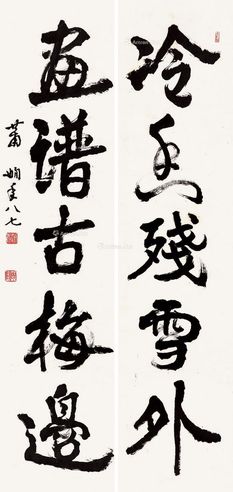 冷香殘雪外
畫譜古梅邊
蕭嫻年八七